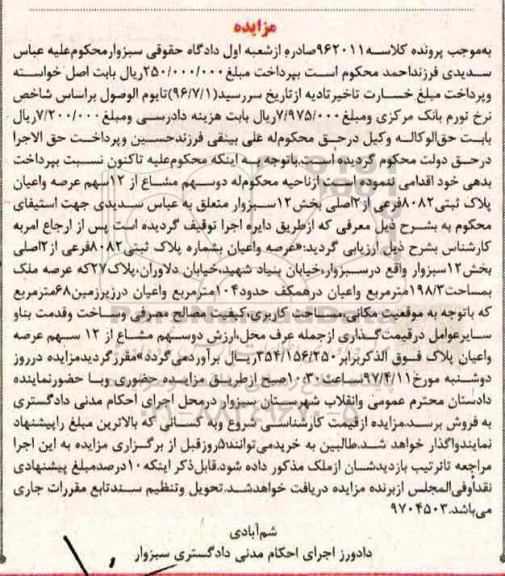 مزایده
به‌موجب پرونده کلاسه ۹۶۲۰۱۱صادره ازشعبه اول دادگاه حقوقی سبزوارمحکوم‌علیه عباس
سدیدی فرزنداحمد محکوم است بپرداخت مبلغ ۲۵۰/۰۰۰/۰۰۰ریال بابت اصل خواسته
وپرداخت مبلغ خسارت تاخیرتادیه ازتاریخ سررسید(۹۶/۷/۱)تایوم الوصول براساس شاخص
نرخ تورم بانک مرکزی ومبلغ ۷/۹۷۵/۰۰۰ریال بابت هزینه دادرسی ومبلغ ۷/۲۰۰/۰۰۰ریال
بابت حق‌الوکاله وکیل درحق محکوم‌له علی بینقی فرزندحسین وپرداخت حق الاجرا
درحق دولت محکوم گردیده است.باتوجه به اینکه محکوم‌علیه تاکنون نسبت بپرداخت
بدهی خود اقدامی ننموده است ازناحیه محکوم‌له دوسهم مشاع از ۱۲سهم عرصه واعیان
پلاک ثبتی۸۰۸۲فرعی از۲اصلی بخش۱۲سبزوار متعلق به عباس سدیدی جهت استیفای
محکوم به بشرح ذیل معرفی که ازطریق دایره اجرا توقیف گردیده است پس از ارجاع امربه
کارشناس بشرح ذیل ارزیابی گردید:«عرصه واعیان بشماره پلاک ثبتی۸۰۸۲فرعی از۲اصلی
بخش۱۲سبزوار واقع درسبزوار،خیابان بنیاد شهید،خیابان دلاوران،پلاک۲۷که عرصه ملک
بمساحت۱۹۸/۳مترمربع واعیان درهمکف حدود۱۰۴مترمربع واعیان درزیرزمین۶۸مترمربع
که باتوجه به موقعیت مکانی،مساحت کاربری،کیفیت مصالح مصرفی وساخت وقدمت بناو
سایرعوامل درقیمت‌گذاری ازجمله عرف محل،ارزش دوسهم مشاع از ۱۲ سهم عرصه
واعیان پلاک فوق الذکربرابر۳۵۴/۱۵۶/۲۵۰ریال برآوردمی‌گردد»مقررگردیدمزایده درروز
دوشنبه مورخ۹۷/۴/۱۱ساعت۱۰:۳۰صبح ازطریق مزایده حضوری وبا حضورنماینده
دادستان محترم عمومی وانقلاب شهرستان سبزوار درمحل اجرای احکام مدنی دادگستری
به فروش برسد.مزایده ازقیمت کارشناسی شروع وبه کسانی که بالاترین مبلغ راپیشنهاد
نمایندواگذار خواهد شد.طالبین به خریدمی‌توانند۵روزقبل از برگزاری مزایده به این اجرا
مراجعه تاترتیب بازدیدشان ازملک مذکور داده شود.قابل‌ذکر اینکه۱۰درصدمبلغ پیشنهادی
نقداًوفی‌المجلس ازبرنده مزایده دریافت خواهدشد.تحویل وتنظیم سندتابع مقررات جاری
می‌باشد.۹۷۰۴۵۰۳
شم‌آبادی
دادورز اجرای احکام مدنی دادگستری سبزوار